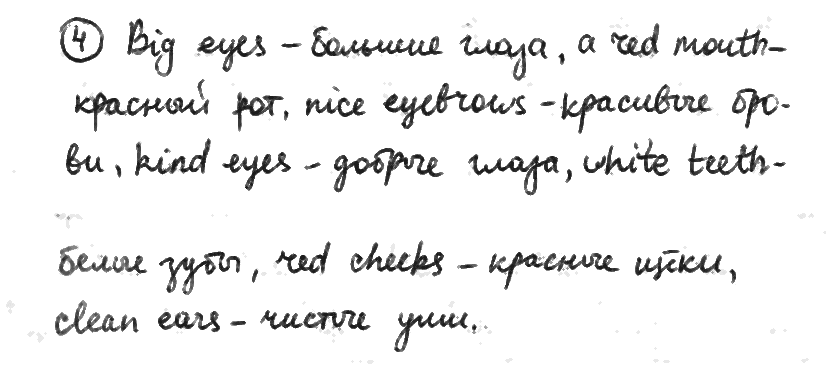 ④ Big eyes – большие глаза, a red mouth –
красный рот, nice eyebrows – красивые бро-
ви, kind eyes – добрые глаза, white teeth –
белые зубы, red cheeks – красные щёки,
clean ears – чистые уши.